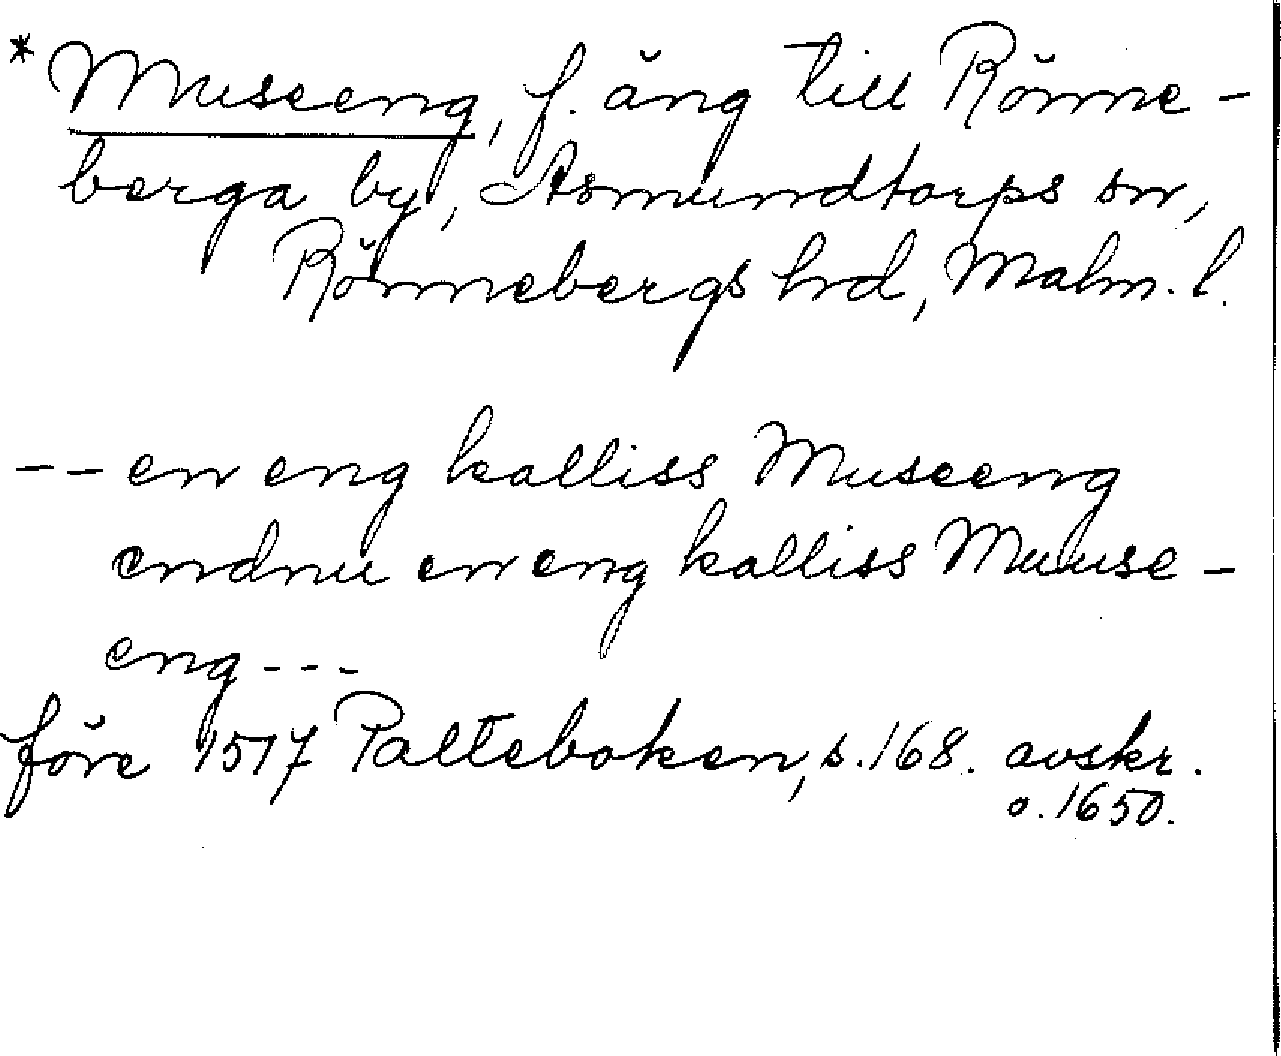 * Museeng, f. äng till Rönne-
berga by, Asmundtorps sn,
Rönnebergs hrd, Malm. l.
-- en eng kalliss Museeng
endnu en eng kalliss Muuse-
eng ---
före 1517 Palteboken, s. 168. avskr.
o. 1650.